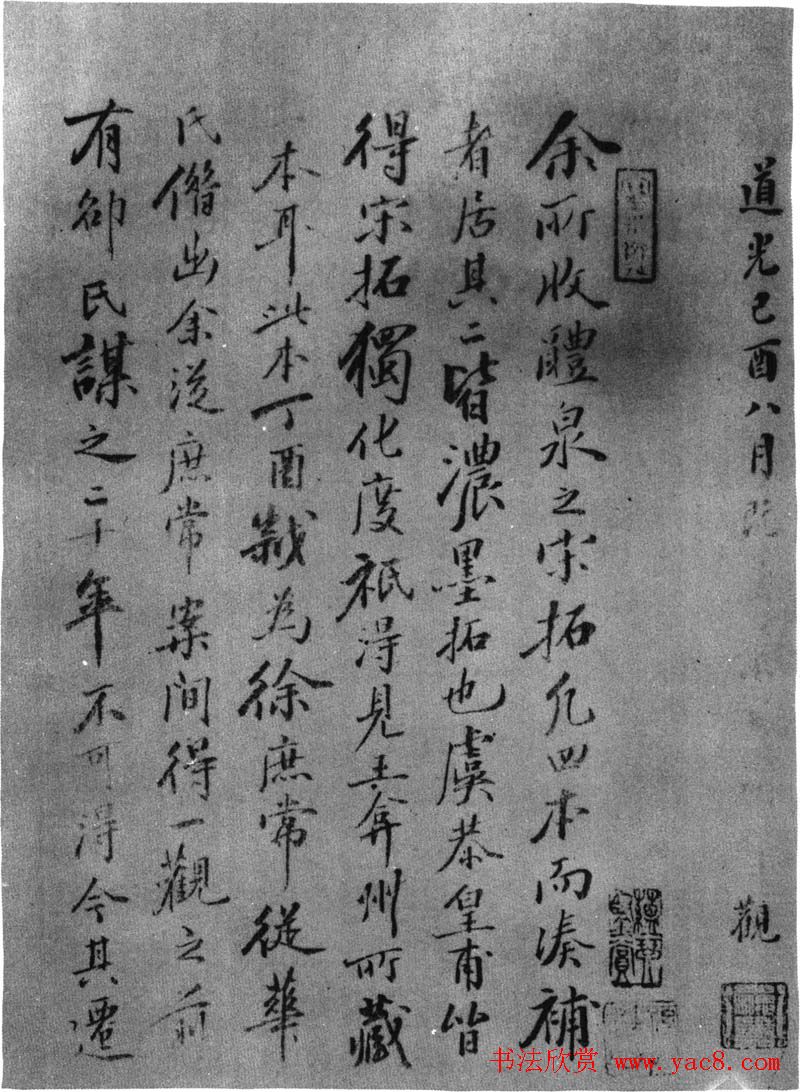 道光己酉八月
觀
余所收醴泉之宋拓凡四本而湊補
者居其二皆濃墨拓也虞恭皇甫皆
得宋拓獨化度祇得見王弇州所藏
本耳此本丁酉歲為徐庶常從華
氏借出余從庶常案間得一觀之前
有邵氏謀之二十年不可得今其遷
书法欣赏 www.yac8.com